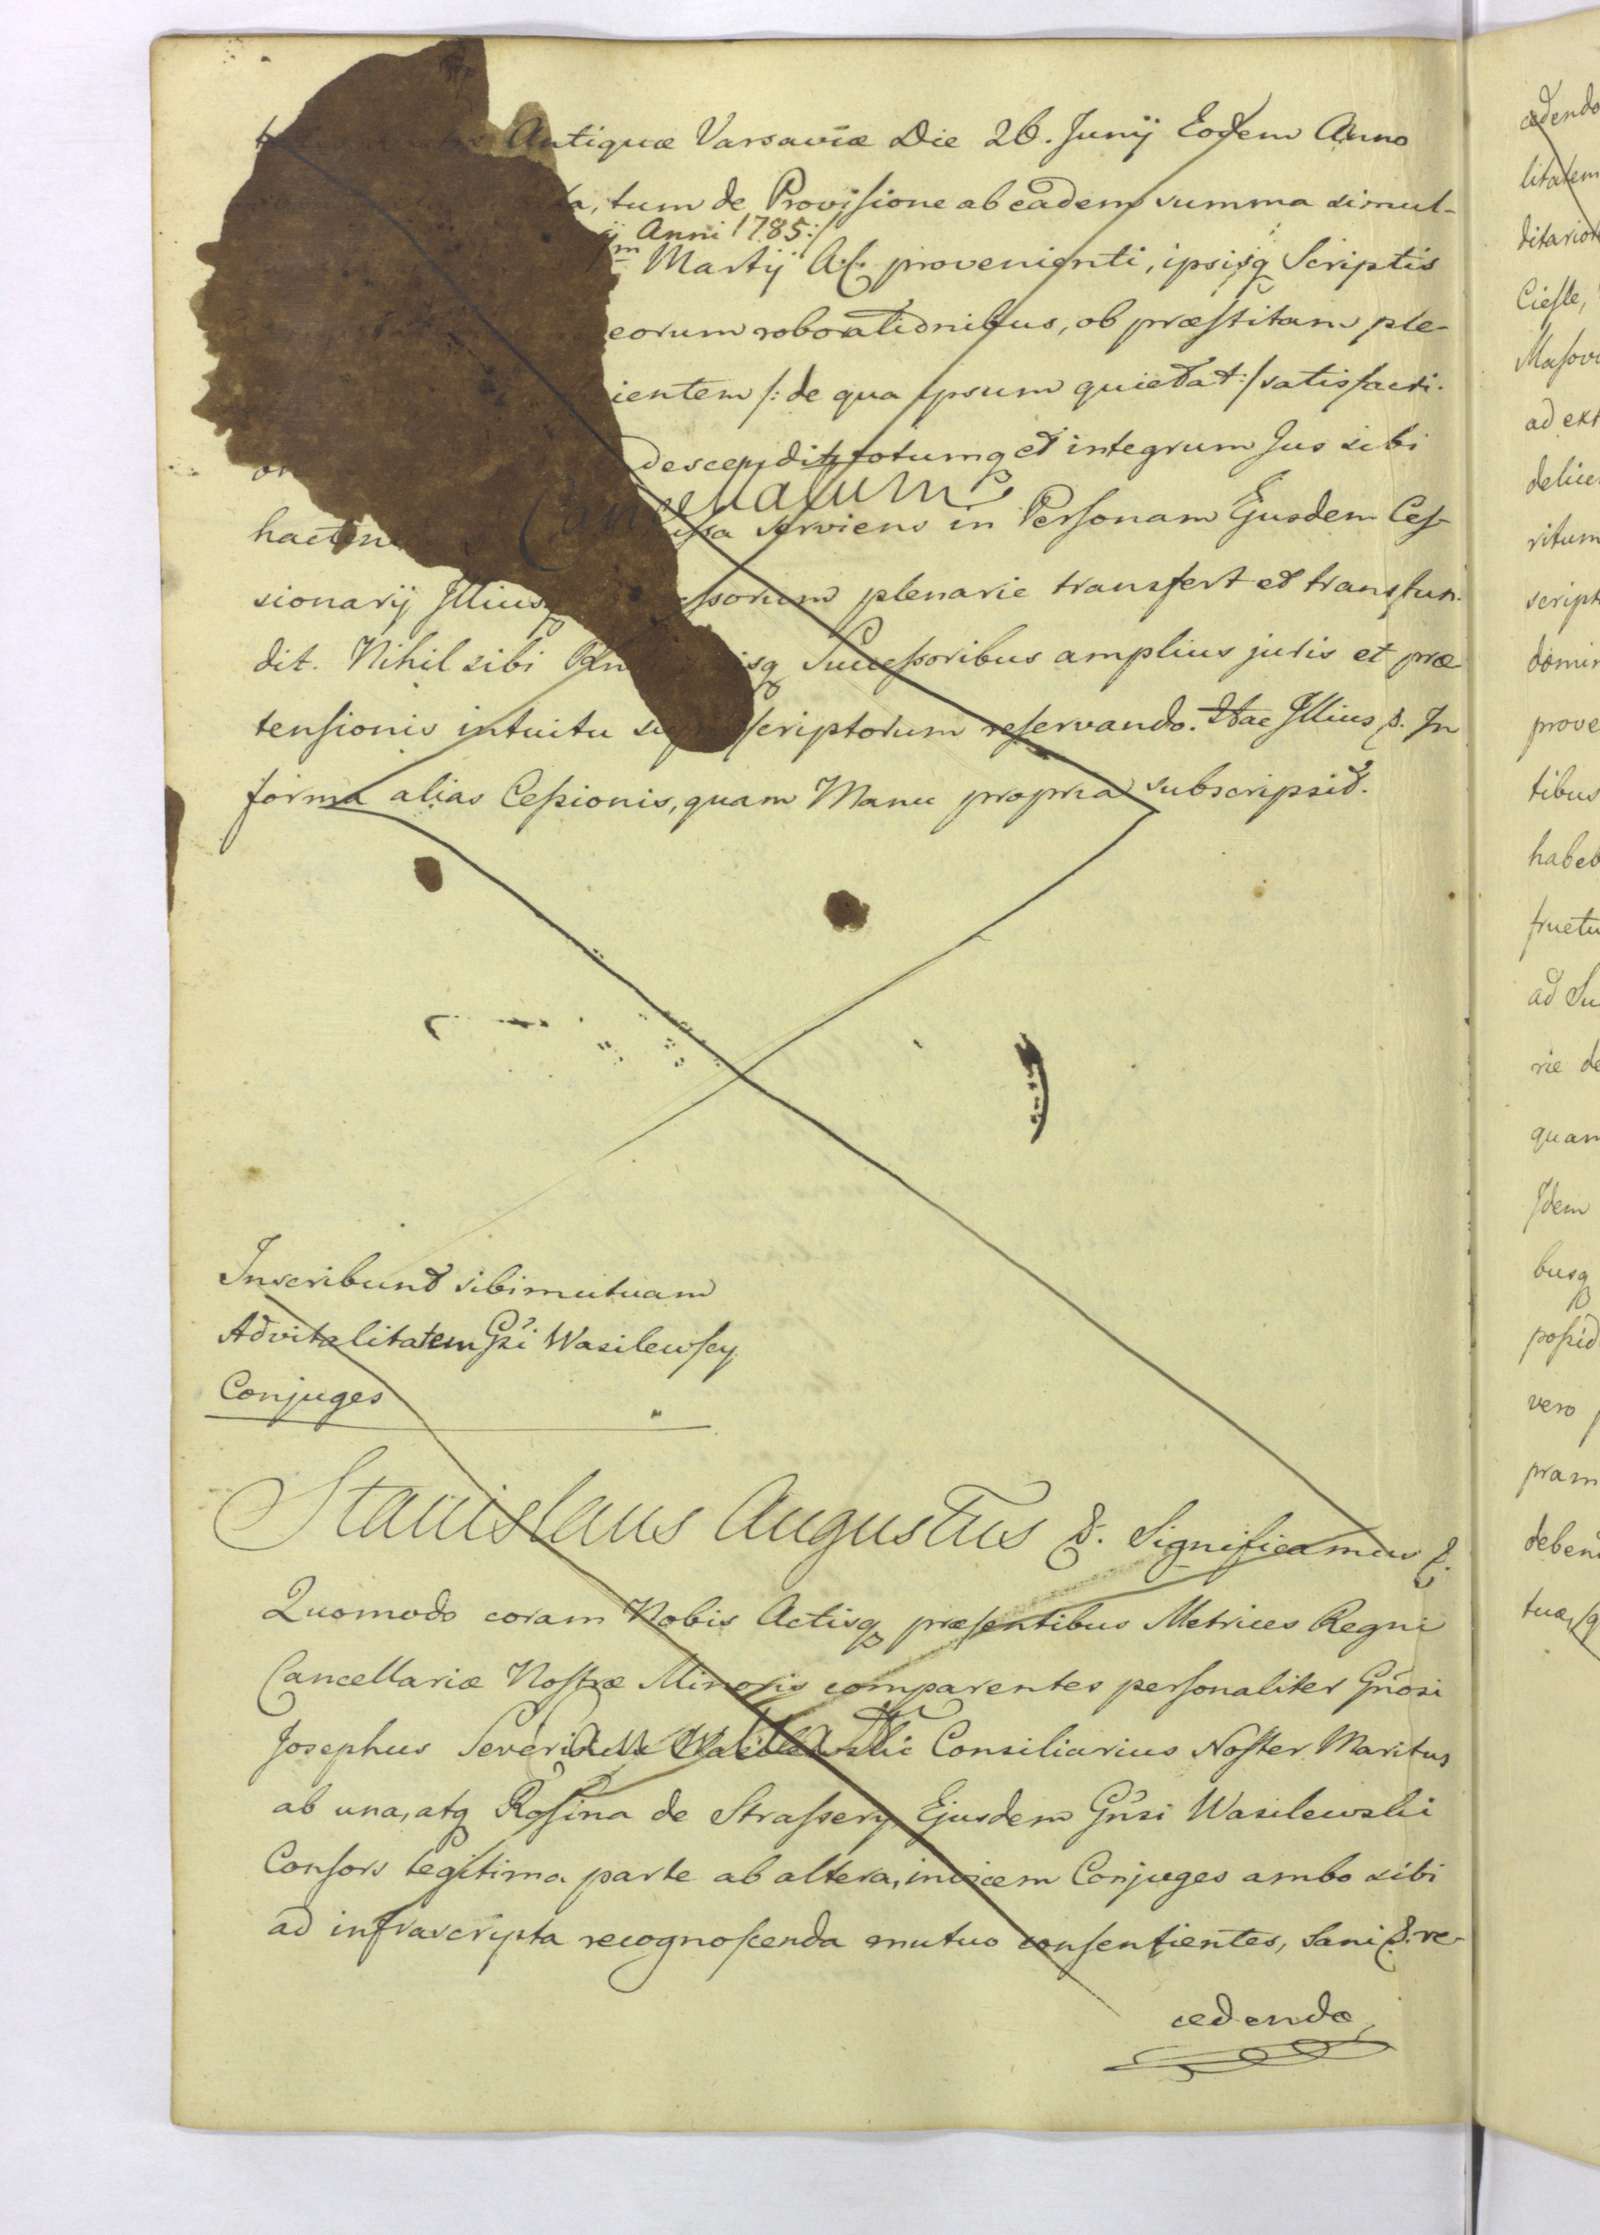 Antiquæ Varsaviæ Die 26. Junij Eodem Anno
ta, tum de Provisione ab eadem summa simul-
ij Anni 1785:/
Martij A.C. provenienti, ipsisq Scriptis
eorum roborationibus, ob præstitam ple-
ientem /: de qua ipsum quietat :/ satisfacti-
descendit, totumq et integrum Jus sibi
Cancellatum
hacten serviens in Personam Ejusdem Ces-
sionarij Illiusq essorum plenarie transfert et transfun-
dit. Nihil sibi isq Successoribus amplius juris et præ
tensionis intuitu scriptorum reservando. Hac Illius &. In
forma alias Cessionis, quam Manu propria subscripsit.
Inscribunt sibi mutuam
Advitalitatem Gsi Wasilewscy
Conjuges
Stanislaus Augustus &. Significamus &.
Quomodo coram Nobis Actisq præsentibus Metrices Regni
Cancellariæ Nostræ Minoris comparentes personaliter Gnosi
Josephus Severinus Wasilewski Consiliarius Noster Maritus
ab una, atq Rosina de Strassery Ejusdem Gnsi Wasilewski
Consors legitima parte ab altera, invicem Conjuges ambo sibi
ad infrascripta recognoscenda mutuo consentientes, sani &. re-
cedendo
cedendo
litatem
ditarior
Cieste,
Masovi
ad ext
delice
ritum
script
domin
prove
tibus
habeb
fructu
ad Su
rie de
quam
Idem
busq
possid
vero
pram
deben
tuæ, sq